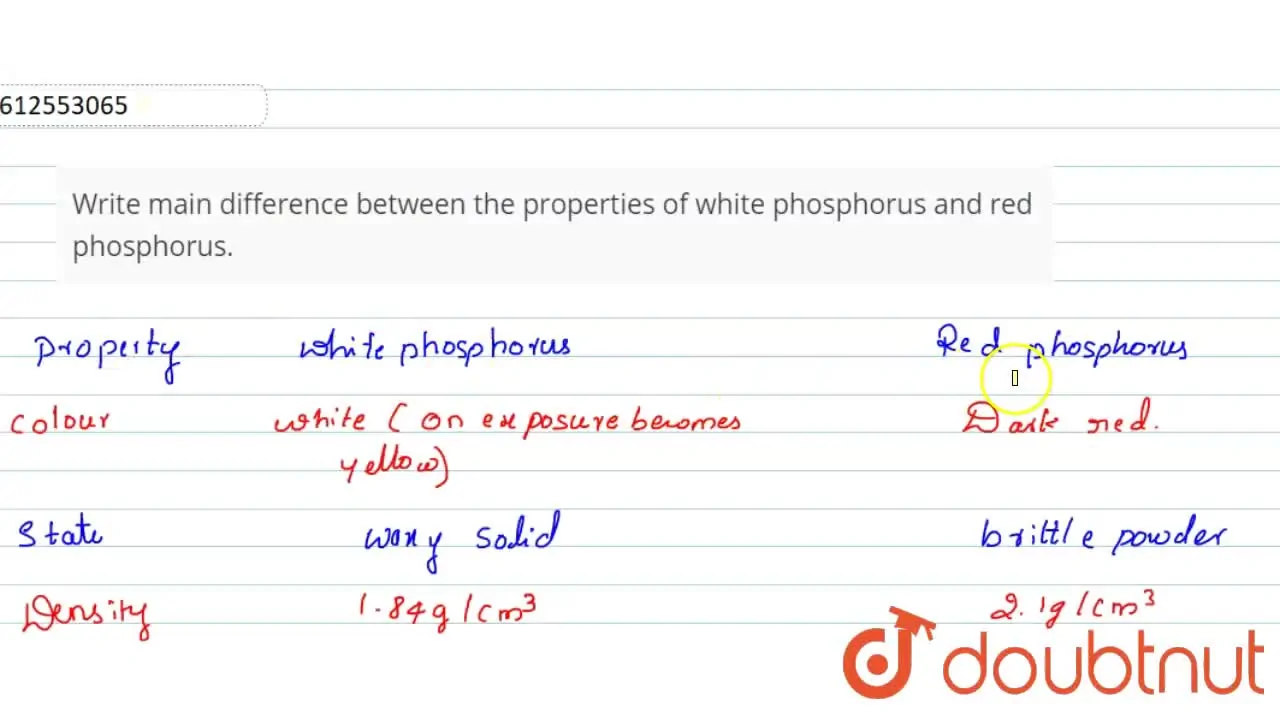 612553065
Write main difference between the properties of white phosphorus and red
phosphorus.
Property white phosphorus Red phosphorus
colour white (on exposure becomes Dark red.
yellow)
State waxy solid brittle powder
Density 1.84g/cm³ 2.1g/cm³
doubtnut